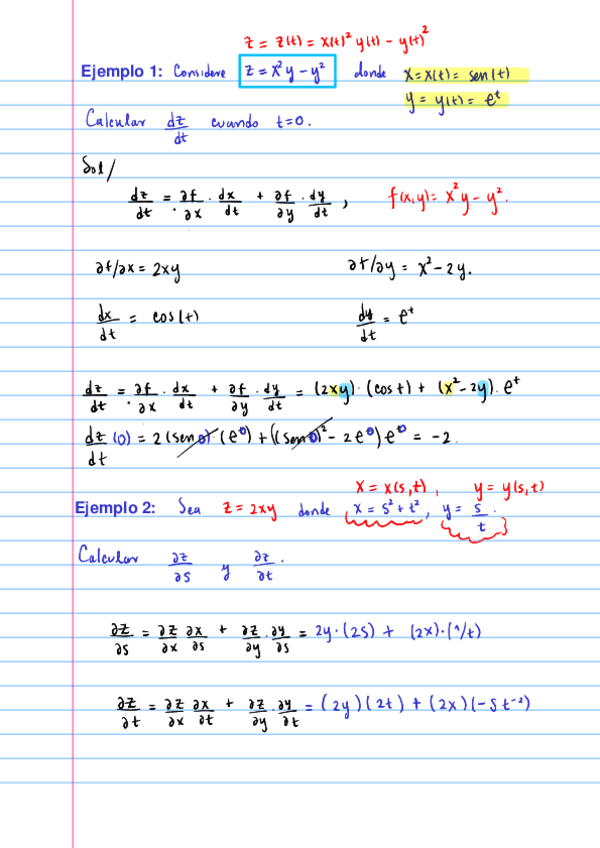 z = z(t) = x(t)² y(t) - y(t)²
Ejemplo 1: Considere z = x²y - y² donde x = x(t) = sen(t)
y = y(t) = eᵗ
Calcular dz/dt cuando t=0.
Sol/
dz/dt = ∂f/∂x · dx/dt + ∂f/∂y · dy/dt , f(x,y) = x²y - y².
∂f/∂x = 2xy ∂f/∂y = x² - 2y.
dx/dt = cos(t) dy/dt = eᵗ
dz/dt = ∂f/∂x · dx/dt + ∂f/∂y · dy/dt = (2xy) · (cos t) + (x² - 2y) · eᵗ
dz/dt (0) = 2(sen 0) · (e⁰) + ((sen 0)² - 2e⁰) e⁰ = -2
x = x(s,t), y = y(s,t)
Ejemplo 2: Sea z = 2xy donde x = s² + t², y = s/t.
Calcular ∂z/∂s y ∂z/∂t.
∂z/∂s = ∂z/∂x ∂x/∂s + ∂z/∂y · ∂y/∂s = 2y · (2s) + (2x) · (1/t)
∂z/∂t = ∂z/∂x ∂x/∂t + ∂z/∂y · ∂y/∂t = (2y)(2t) + (2x)(-s t⁻²)